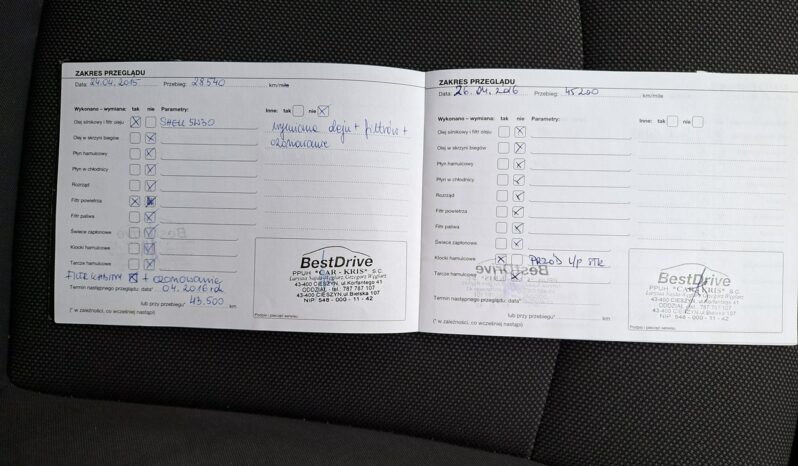 ZAKRES PRZEGLĄDU
Data: 24.04.2015 Przebieg: 28540 km/mile
Wykonano – wymiana: tak nie Parametry:
Olej silnikowy i filtr oleju SHELL 5W30
Olej w skrzyni biegów
Płyn hamulcowy
Płyn w chłodnicy
Rozrząd
Filtr powietrza
Filtr paliwa
Świece zapłonowe
Klocki hamulcowe
Tarcze hamulcowe
FILTR KABINY + OZONOWANIE
Termin następnego przeglądu: data* 04.2016
lub przy przebiegu* 43.500 km
(* w zależności, co wcześniej nastąpi)
Inne: tak nie
wymiana oleju + filtrów +
ozonowanie
BestDrive
PPUH "CAR - KRIS" S.C.
43-400 CIESZYN, ul. Korfantego 41
ODDZIAŁ - tel. 787 787 107
43-400 CIESZYN, ul. Bielska 107
NIP: 548 - 000 - 11 - 42
Podpis i pieczęć serwisu
ZAKRES PRZEGLĄDU
Data: 26.04.2016 Przebieg: 45200 km/mile
Wykonano – wymiana: tak nie Parametry:
Olej silnikowy i filtr oleju
Olej w skrzyni biegów
Płyn hamulcowy
Płyn w chłodnicy
Rozrząd
Filtr powietrza
Filtr paliwa
Świece zapłonowe
Klocki hamulcowe PRZÓD
Tarcze hamulcowe
Termin następnego przeglądu: data*
lub przy przebiegu* km
(* w zależności, co wcześniej nastąpi)
Inne: tak nie
BestDrive
PPUH "CAR - KRIS" S.C.
43-400 CIESZYN, ul. Korfantego 41
ODDZIAŁ - tel. 787 787 107
43-400 CIESZYN, ul. Bielska 107
NIP: 548 - 000 - 11 - 42
Podpis i pieczęć serwisu